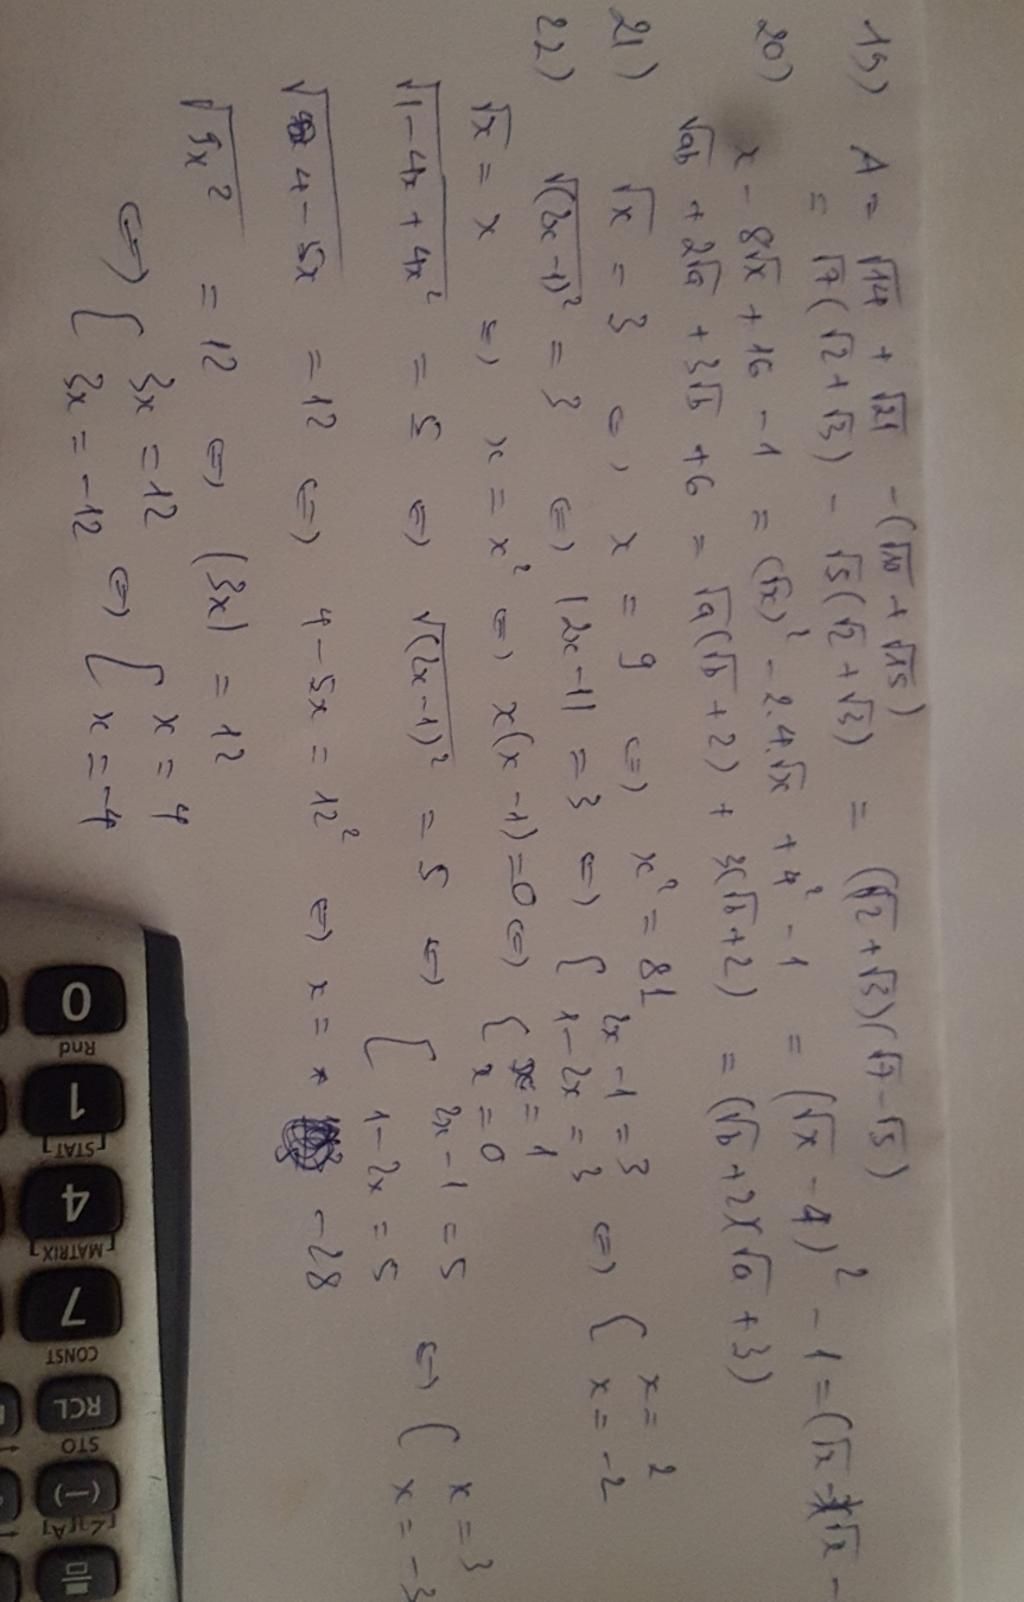 19) A = √14 + √21 - (√10 + √15) = (√2 + √3)(√7 - √5)
= √7(√2 + √3) - √5(√2 + √3)
20) x - 8√x + 16 - 1 = (√x)² - 2.4.√x + 4² - 1 = (√x - 4)² - 1 = (√x - √x -
√ab + 2√a + 3√b + 6 = √a(√b + 2) + 3(√b + 2) = (√b + 2)(√a + 3)
21) √x = 3 ⇔ x = 9 ⇔ x² = 81
22) √(2x - 1)² = 3 ⇔ |2x - 1| = 3 ⇔ { 2x - 1 = 3 ⇔ { x = 2
1 - 2x = 3 x = -2
√x = x ⇔ x = x² ⇔ x(x - 1) = 0 ⇔ { x = 1
x = 0
√1 - 4x + 4x² = 5 ⇔ √(2x - 1)² = 5 ⇔ { 2x - 1 = 5 ⇔ { x = 3
1 - 2x = 5 x = -3
√4 - 5x = 12 ⇔ 4 - 5x = 12² ⇔ x = -28
√9x² = 12 ⇔ |3x| = 12
⇔ { 3x = 12 ⇔ { x = 4
3x = -12 x = -4
0 1 4 7 RCL (-)
Rnd [STAT] [MATRIX] CONST STO [∠] [A]